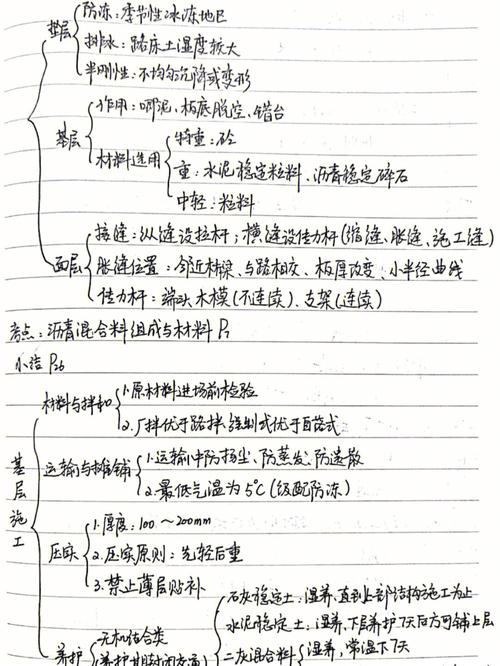 防冻:季节性冰冻地区
垫层 排水:路床土湿度较大
半刚性:不均匀沉降或变形
作用:唧泥、板底脱空、错台
基层 特重:砼
材料选用 重:水泥稳定粒料、沥青稳定碎石
中轻:粒料
接缝:纵缝设拉杆;横缝设传力杆(缩缝、胀缝、施工缝)
面层 胀缝位置:邻近桥梁、与路相交、板厚改变、小半径曲线
传力杆:端头木模(不连续)、支架(连续)
考点:沥青混合料组成与材料 P7
小结 P26
材料与拌和 1.原材料进场前检验
2.厂拌优于路拌 强制式优于自落式
基层施工 运输与摊铺 1.运输中防扬尘、防蒸发、防遗散
2.最低气温为5℃(级配防冻)
1.厚度:100~200mm
压实 2.压实原则:先轻后重
3.禁止薄层贴补
石灰稳定土:湿养,直到上部结构施工为止
无机结合类 水泥稳定土:湿养,下层养护7天后方可铺上层
养护 (养护其时封闭交通) 二灰混合料 湿养,常温下7天